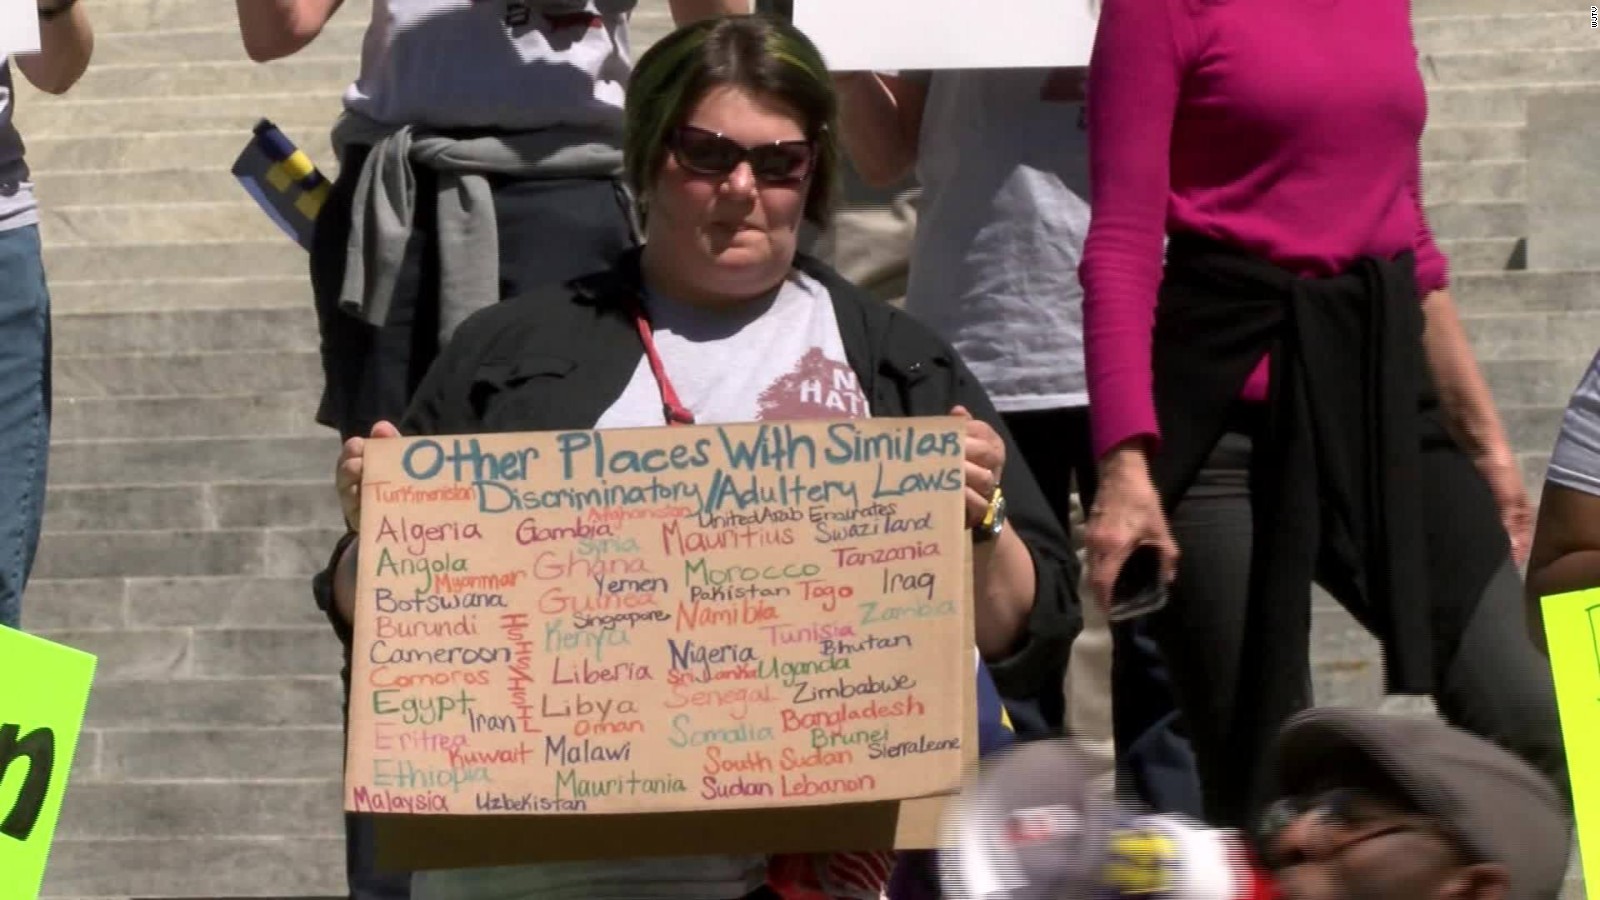 WJTV
N
HAT
Other Places With Similar
Turkmenistan Discriminatory/Adultery Laws
Afghanistan United Arab Emirates
Algeria Gambia Mauritius Swaziland
Syria
Angola Ghana Morocco Tanzania
Myanmar Yemen Pakistan Togo Iraq
Botswana Guinea Namibia Zambia
Burundi Singapore Tunisia
Kenya Nigeria Bhutan
Cameroon Liberia Sri Lanka Uganda
Comoros Senegal Zimbabwe
Egypt Libya
Iran Oman Somalia Bangladesh
Eritrea Brunei
Kuwait Malawi South Sudan Sierra Leone
Ethiopia Mauritania Sudan Lebanon
Malaysia Uzbekistan
n